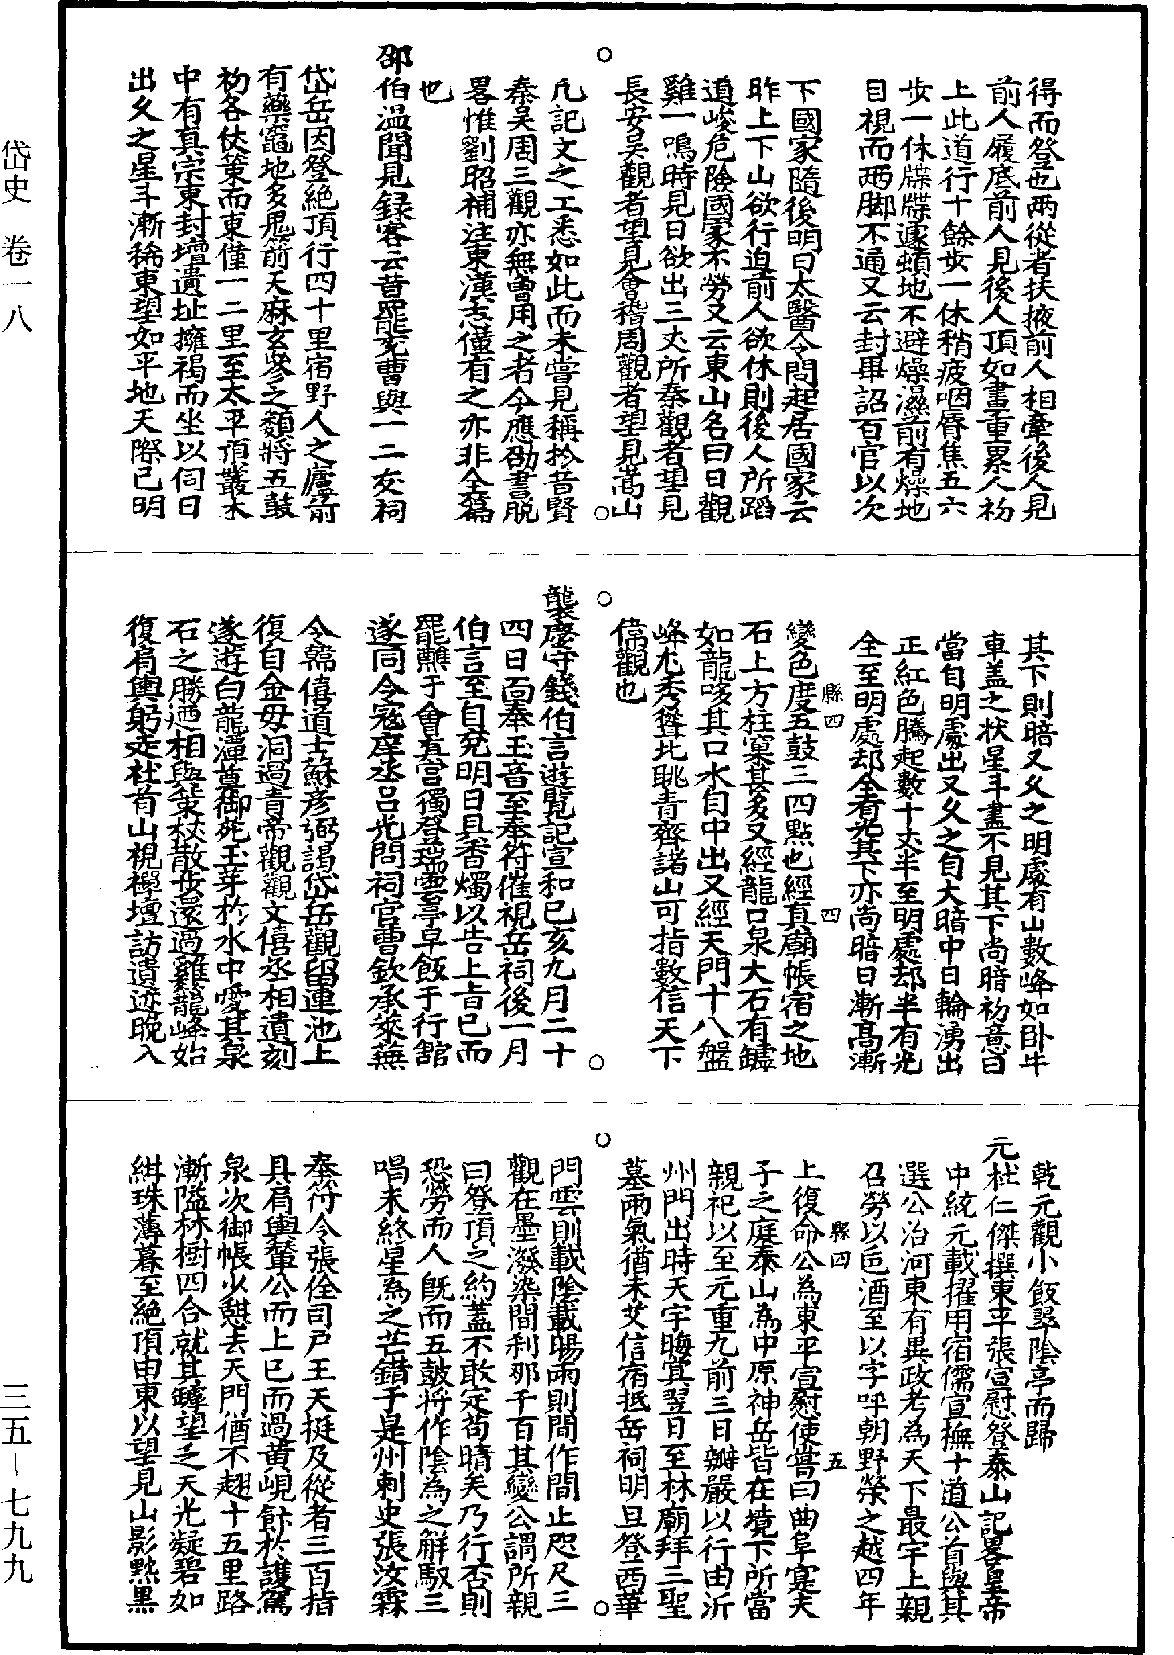 得而登也兩從者扶掖前人相牽後人見
前人履底前人見後人頂如畫重累人初
上此道行十餘步一休稍疲咽脣焦五六
步一休牒牒遽頓地不避燥濕前有燥地
目視而兩脚不通又云封畢詔百官以次
下國家隨後明日太醫令問起居國家云
昨上下山欲行迫前人欲休則後人所蹈
道峻危險國家不勞又云東山名曰日觀
雞一鳴時見日欲出三丈所秦觀者望見
長安吳觀者望見會稽周觀者望見嵩山
凡記文之工悉如此而未嘗見稱於昔賢
秦吳周三觀亦無曾用之者今應劭書脫
畧惟劉昭補注東漢志僅有之亦非全篇
也
邵伯溫聞見録客云昔罷兗曹與一二友祠
岱岳因登絶頂行四十里宿野人之廬前
有藥竈地多鬼箭天麻玄參之類將五鼓
初各仗策而東僅一二里至太平頂叢木
中有真宗東封壇遺址擁褐而坐以伺日
出久之星斗漸稀東望如平地天際已明
其下則暗又久之明處有山數峰如卧牛
車盖之狀星斗盡不見其下尚暗初意日
當自明處出又久之自大暗中日輪湧出
正紅色騰起數十丈半至明處却半有光
全至明處却全有光其下亦尚暗日漸高漸
變色度五鼓三四點也經真廟帳宿之地
石上方柱窠甚多又經龍口泉大石有罅
如龍哆其口水自中出又經天門十八盤
峰尤秀聳北眺青齊諸山可指數信天下
偉觀也
襲慶守錢伯言遊覽記宣和己亥九月二十
四日面奉玉音至奉符催視岳祠後一月
伯言至自兗明日具香燭以告上旨已而
罷醮于會真宮獨登瑞雲亭卓飯于行舘
遂同令寇庠丞呂光問祠官曹欽承萊蕪
令韓僖道士蘇彥弼謁岱岳觀留連池上
復自金母洞過青帝觀觀文僖丞相遺刻
遂遊白龍潭尊御苑玉芽於水中愛其泉
石之勝廼相與策杖散步還過雞籠峰始
復肩輿躬走社首山視禪壇訪遺迹晚入
乾元觀小飯翠陰亭而歸
元杜仁傑撰東平張宣慰登泰山記畧皇帝
中統元載擢用宿儒宣撫十道公首與其
選公治河東有異政考為天下最宇上親
召勞以巵酒至以字呼朝野榮之越四年
上復命公為東平宣慰使嘗曰曲阜寔夫
子之庭泰山為中原神岳皆在境下所當
親祀以至元重九前三日辦嚴以行由沂
州門出時天宇晦冥翌日至林廟拜三聖
墓雨氣猶未艾信宿抵岳祠明旦登西華
門雲則載陰載暘雨則間作間止咫尺三
觀在墨潑染間刹那千百其變公謂所親
曰登頂之約蓋不敢定苟晴矣乃行否則
恐勞而人旣而五鼓將作陰為之解馭三
唱未終星為之芒錯于是州刺史張汝霖
奉符令張佺司戶王天挺及從者三百指
具肩輿輦公而上已而過黃峴餘於護駕
泉次御帳少憩去天門猶不翅十五里路
漸隘林樹四合就其罅望之天光凝碧如
絣珠薄暮至絶頂由東以望見山影㸃黑
岱史 卷一八
三五—七九九
縣四
四
縣四
五